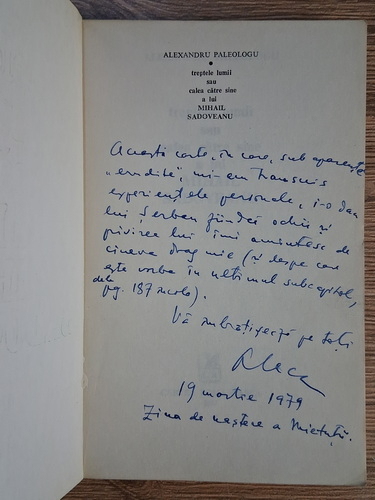 ALEXANDRU PALEOLOGU
treptele lumii
sau
calea către sine
a lui
MIHAIL
SADOVEANU
Această carte, în care, sub aparențe
"erudite", mi-am transcris
experiențele personale, i-o dau
lui Șerban fiindcă ochii și
privirea lui îmi amintesc de
cineva drag mie (și despre care
este vorba în ultimul subcapitol,
dela pg. 187 încolo).
Vă îmbrățișează pe toți
Alecu
19 martie 1979
Ziua de naștere a